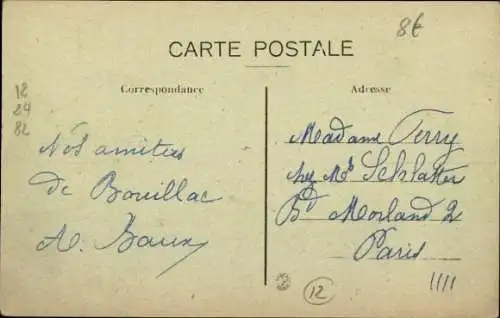 8€
CARTE POSTALE
Correspondance
Adresse
12
24
82
Nos amitiés
de Bouillac
A. Baux
Madame Ferry
chez Mr Schlatter
Bd Morland 2
Paris
12
1111